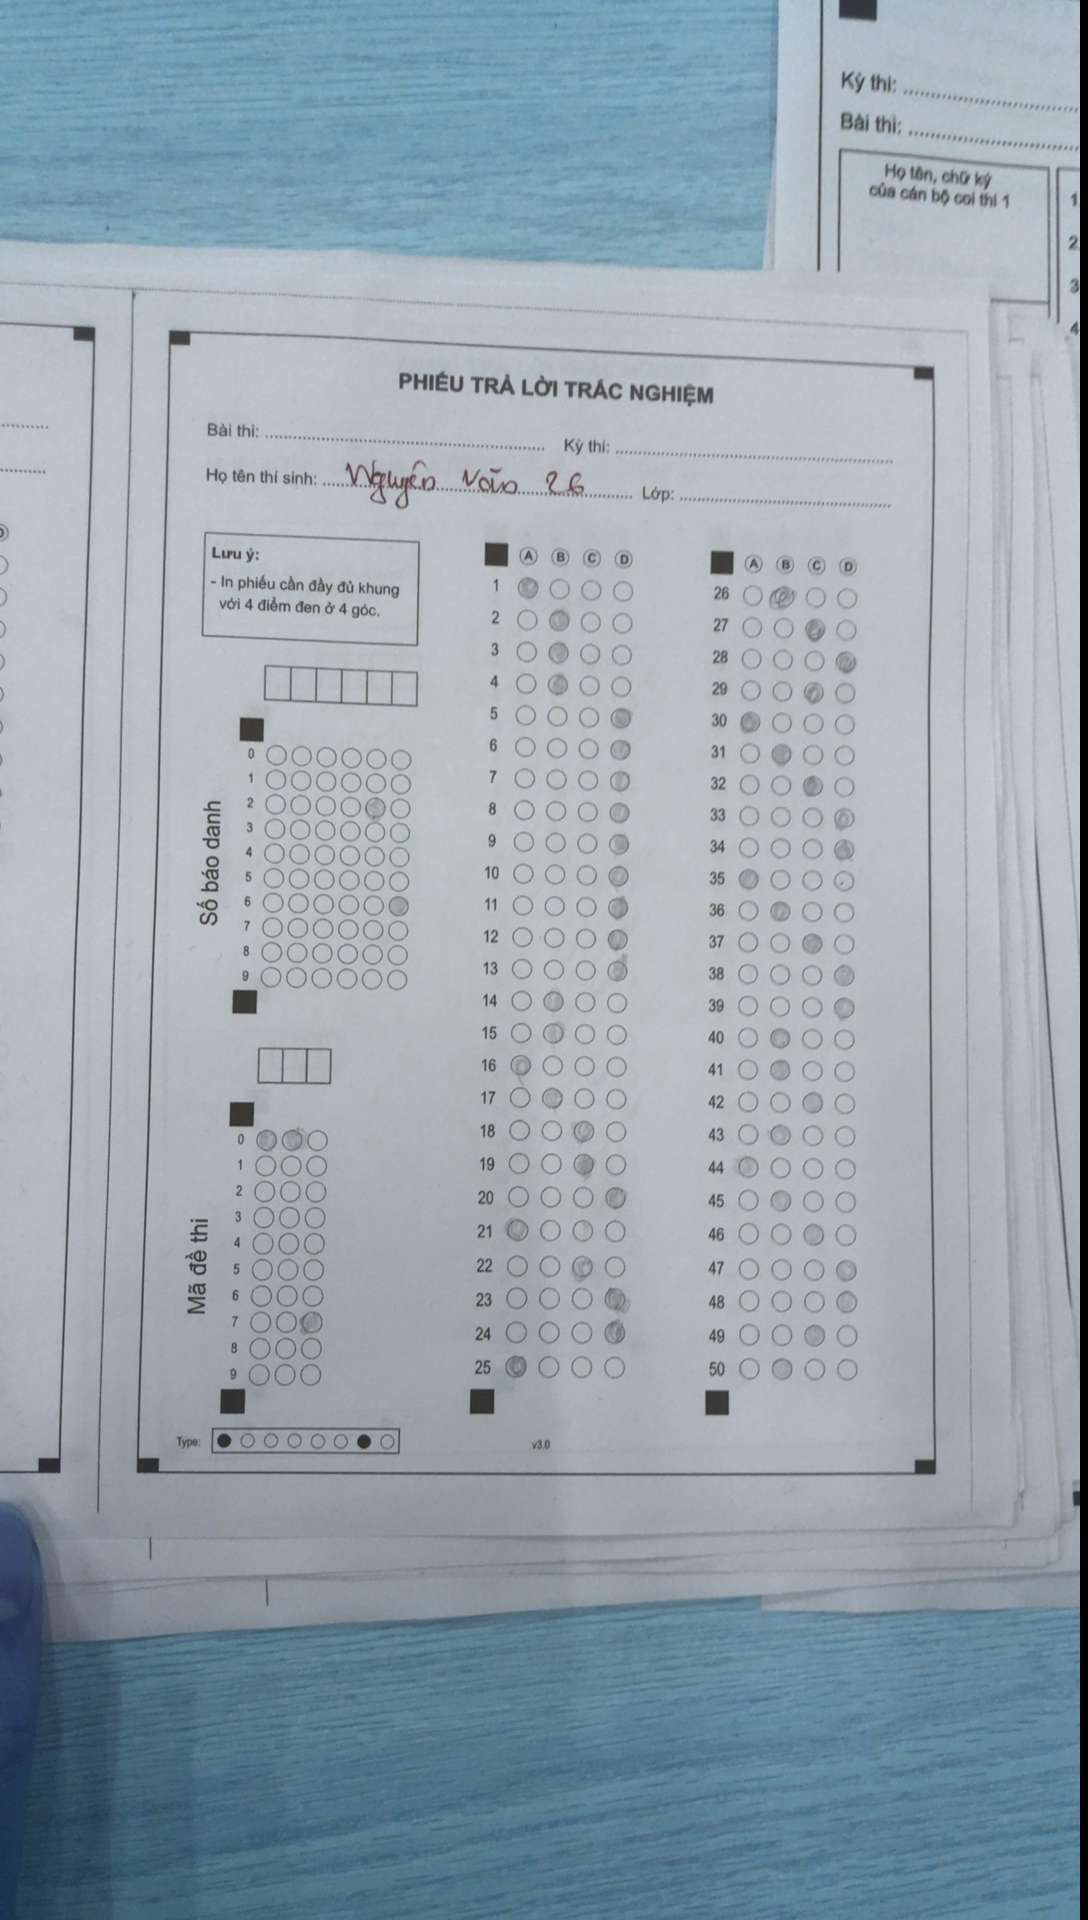 Kỳ thi:
Bài thi:
Họ tên, chữ ký
của cán bộ coi thi 1
1
2
3
4
PHIẾU TRẢ LỜI TRẮC NGHIỆM
Bài thi: Kỳ thi:
Họ tên thí sinh: Nguyễn Văn 26 Lớp:
Lưu ý:
- In phiếu cần đầy đủ khung
với 4 điểm đen ở 4 góc.
Số báo danh
0
1
2
3
4
5
6
7
8
9
Mã đề thi
0
1
2
3
4
5
6
7
8
9
A B C D
1
2
3
4
5
6
7
8
9
10
11
12
13
14
15
16
17
18
19
20
21
22
23
24
25
A B C D
26
27
28
29
30
31
32
33
34
35
36
37
38
39
40
41
42
43
44
45
46
47
48
49
50
Type:
v3.0